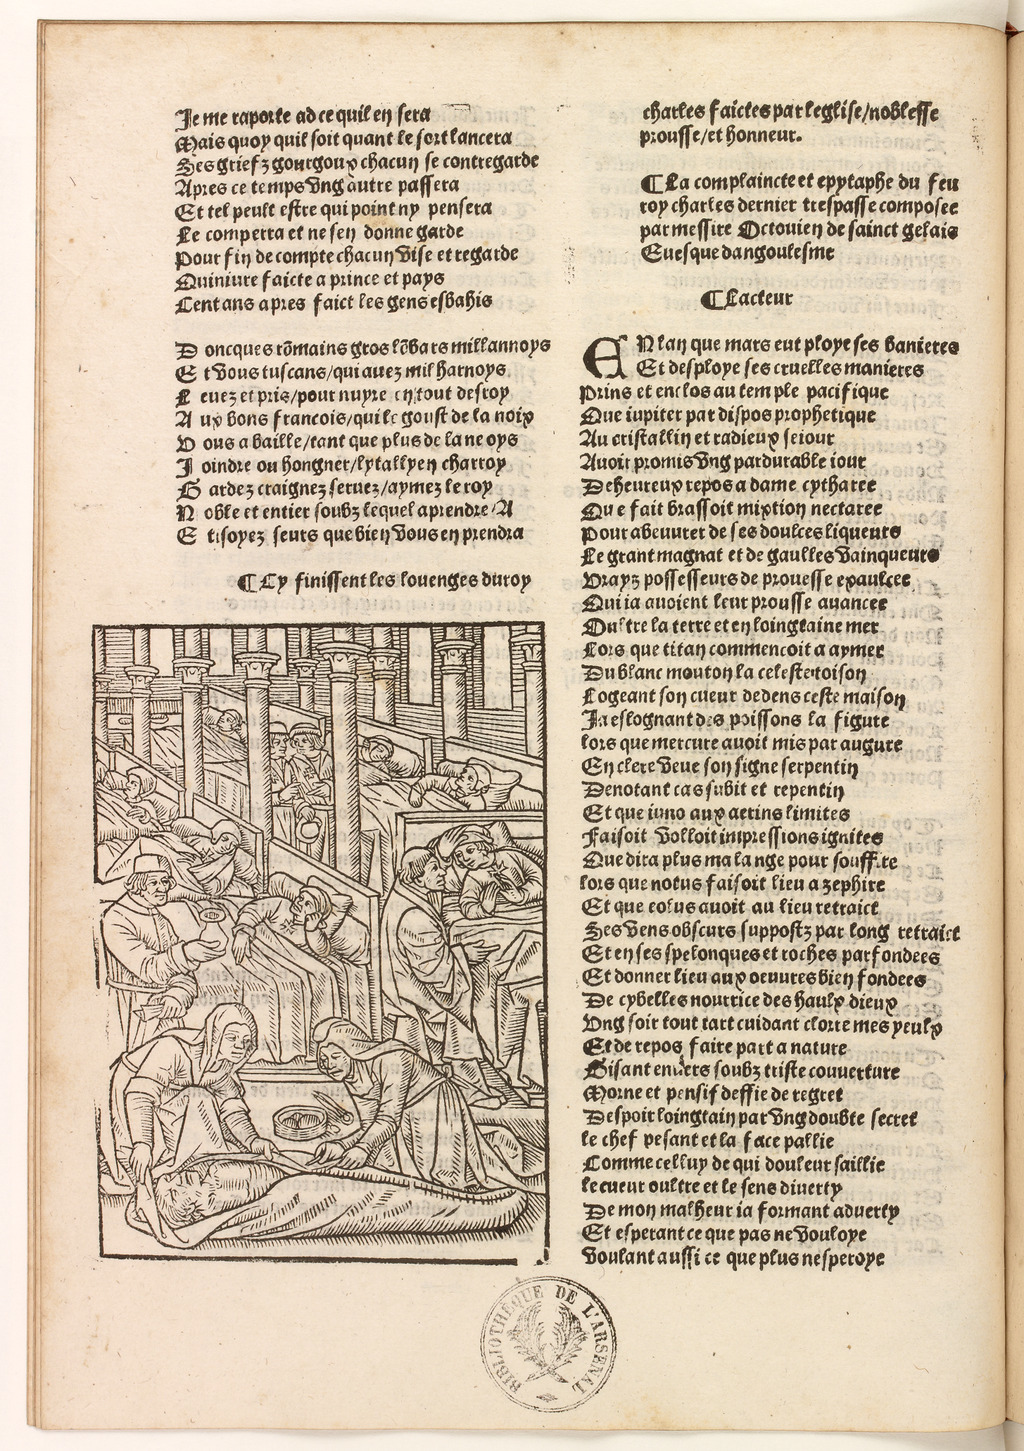 Je me raporte ad ce quil en sera
Mais quoy quil soit quant le sort lancera
Ses griefz gourgoux chacun se contregarde
Apres ce temps vng autre passera
Et tel peult estre qui point ny pensera
Le comperra et ne sen donne garde
Pour fin de compte chacun vise et regarde
Quiniure faicte a prince et pays
Cent ans apres faict les gens esbahis
Doncques rõmains gros lõbars millannoys
Et vous tuscans/qui auez mil harnoys
Leuez et pris/pour nuyre en tout desroy
Aux bons francois/qui le goust de la noix
Vous a baille/tant que plus de la ne oys
Joindre ou hongner/lytallyen charroy
Gardez craignez seruez/aymez le roy
Noble et entier soubz lequel aprendre/A
Et soyez seurs que bien vous en prendra
¶ Cy finissent les louenges du roy
charles faictes par leglise/noblesse
prousse/et honneur.
¶ La complaincte et epytaphe du feu
roy charles dernier trespasse composee
par messire Octouien de sainct gelais
Euesque dangoulesme
¶ Lacteur
EN lan que mars eut ploye ses banieres
Et desploye ses cruelles manieres
Prins et enclos au temple pacifique
Que iupiter par dispos prophetique
Au cristallin et radieux seiour
Auoit promis vng pardurable iour
De heureux repos a dame cytharee
Qu e fait brassoit mixtion nectaree
Pour abeuurer de ses doulces liqueurs
Le grant magnat et de gaulles vainqueurs
Vrayz possesseurs de prouesse exaulcee
Qui ia auoient leur prousse auancee
Oultre la terre et en loingtaine mer
Lors que titan commencoit a aymer
Du blanc mouton la celeste toison
Logeant son cueur dedens ceste maison
Ja eslognant des poissons la figure
lors que mercure auoit mis par augure
En clere veue son signe serpentin
Denotant cas subit et repentin
Et que iuno aux aerins limites
Faisoit volloit impressions ignites
Que dira plus ma lange pour souffrte
lors que notus faisoit lieu a zephire
Et que eolus auoit au lieu retraict
Ses vens obscurs suppostz par long retraict
Et en ses spelonques et roches parfondees
Et donner lieu aux oeuures bien fondees
De cybelles nourrice des haulx dieux
Vng soir tout tart cuidant clorre mes yeulx
Et de repos faire part a nature
Gisant enuers soubz triste couuerture
Morne et pensif deffie de regret
Despoir loingtain par vng double secret
le chef pesant et la face pallie
Comme celluy de qui douleur saillie
le cueur oultre et le sens diuerty
De mon malheur ia formant aduerty
Et esperant ce que pas ne vouloye
Voulant aussi ce que plus nesperoye
BIBLIOTHÈQUE DE L'ARSENAL